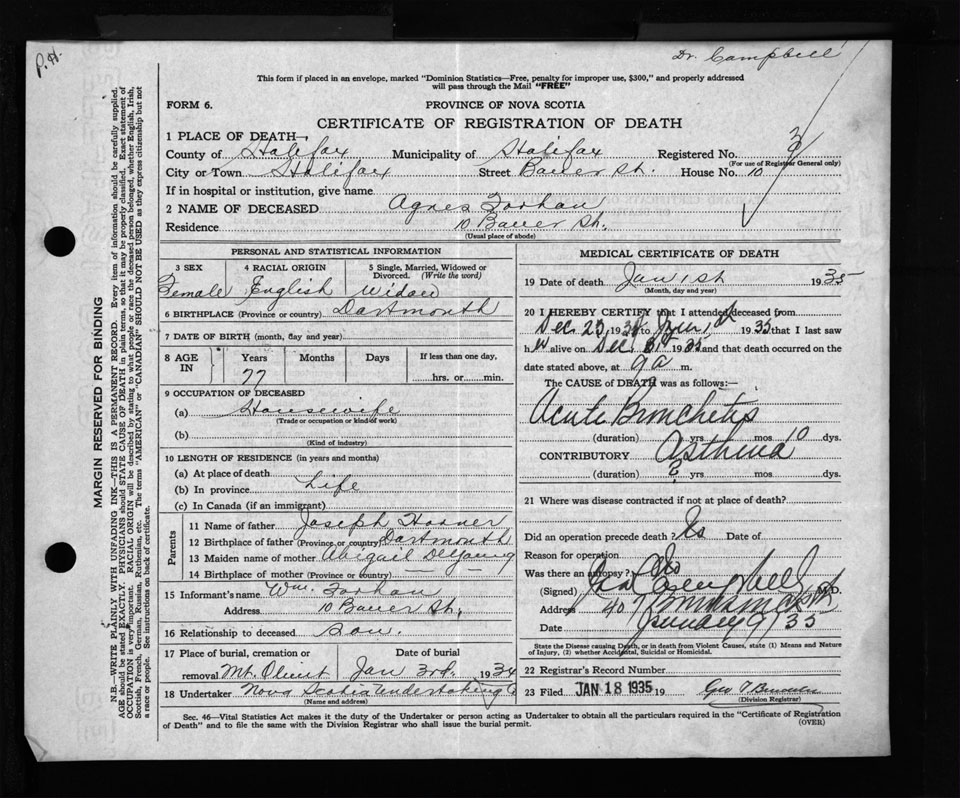 P.H.
Dr. Campbell
This form if placed in an envelope, marked "Dominion Statistics—Free, penalty for improper use, $300," and properly addressed
will pass through the Mail "FREE"
FORM 6.
PROVINCE OF NOVA SCOTIA
CERTIFICATE OF REGISTRATION OF DEATH
1 PLACE OF DEATH—
County of Halifax Municipality of Halifax Registered No. 3
(For use of Registrar General only)
City or Town Halifax Street Bauer St. House No. 10
If in hospital or institution, give name
2 NAME OF DECEASED Agnes Forhan
Residence 10 Bauer St.
(Usual place of abode)
MARGIN RESERVED FOR BINDING
N.B.—WRITE PLAINLY WITH UNFADING INK—THIS IS A PERMANENT RECORD. Every item of information should be carefully supplied.
AGE should be stated EXACTLY. PHYSICIANS should STATE CAUSE OF DEATH in plain terms, so that it may be properly classified. Exact statement of
OCCUPATION is very important. RACIAL ORIGIN will be described by stating to what people or race the deceased person belonged, whether English, Irish,
Scottish, French, German, Russian, Ruthenian, etc. The terms "AMERICAN" or "CANADIAN" SHOULD NOT BE USED as they express citizenship but not
a race or people. See instructions on back of certificate.
PERSONAL AND STATISTICAL INFORMATION
3 SEX
Female
4 RACIAL ORIGIN
English
5 Single, Married, Widowed or
Divorced. (Write the word)
Widow
6 BIRTHPLACE (Province or country) Dartmouth
7 DATE OF BIRTH (month, day and year)
8 AGE
IN
Years
77
Months
Days
If less than one day,
hrs. or min.
9 OCCUPATION OF DECEASED
(a) Housewife
(Trade or occupation or kind of work)
(b)
(Kind of industry)
10 LENGTH OF RESIDENCE (in years and months)
(a) At place of death
(b) In province Life
(c) In Canada (if an immigrant)
Parents
11 Name of father Joseph
12 Birthplace of father (Province or country) Dartmouth
13 Maiden name of mother Abigail DeYoung
14 Birthplace of mother (Province or country) — —
15 Informant's name Wm. Forhan
Address 10 Bauer St.
16 Relationship to deceased Son.
17 Place of burial, cremation or Date of burial
removal Mt. Olivet Jan 3rd. 1934
18 Undertaker Nova Scotia Undertaking Co
(Name and address)
MEDICAL CERTIFICATE OF DEATH
19 Date of death Jan 1st 1935
(Month, day and year)
20 I HEREBY CERTIFY that I attended deceased from
Dec 23 1934 to Jan 1st 1935 that I last saw
her alive on Dec 1935 and that death occurred on the
date stated above, at 9 a m.
The CAUSE of DEATH was as follows:—
Acute Bronchitis
(duration) yrs mos 10 dys.
CONTRIBUTORY Asthma
(duration) ? yrs mos dys.
21 Where was disease contracted if not at place of death?
Did an operation precede death? No Date of
Reason for operation
Was there an autopsy? No
(Signed) Campbell M.D.
Address 407
Date January 9/35
State the Disease causing Death, or in death from Violent Causes, state (1) Means and Nature
of Injury, (2) whether Accidental, Suicidal or Homicidal.
22 Registrar's Record Number
23 Filed JAN 18 1935 19 Geo
(Division Registrar)
Sec. 46—Vital Statistics Act makes it the duty of the Undertaker or person acting as Undertaker to obtain all the particulars required in the "Certificate of Registration
of Death" and to file the same with the Division Registrar who shall issue the burial permit. (OVER)